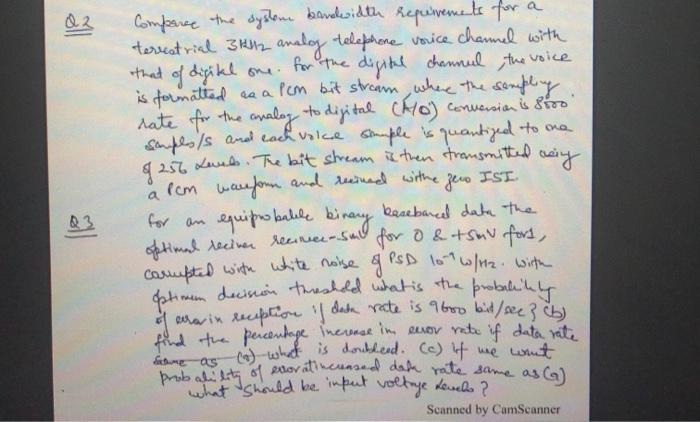 Q2 Comparee the system bandwidth requirements for a
terrestrial 3KHz analog telephone voice channel with
that of digital one. For the digital channel, the voice
is formatted as a PCM bit stream, where the sampling
rate for the analog to digital (A/D) conversion is 8000
samples/s and each voice sample is quantized to one
of 256 levels. The bit stream is then transmitted using
a PCM waveform and received with zero ISI.
Q3 for an equiprobable binary baseband data the
optimal reciver receives -5mV for 0 & +5mV for 1,
corrupted with white noise of PSD 10⁻⁹ W/Hz. With
optimum decision threshold what is the probability
of error in reception if data rate is 9600 bit/sec? (b)
find the percentage increase in error rate if data rate
same as (a) what is doubled. (c) if we want
probability of error at increased data rate same as (a)
what should be input voltage levels?
Scanned by CamScanner